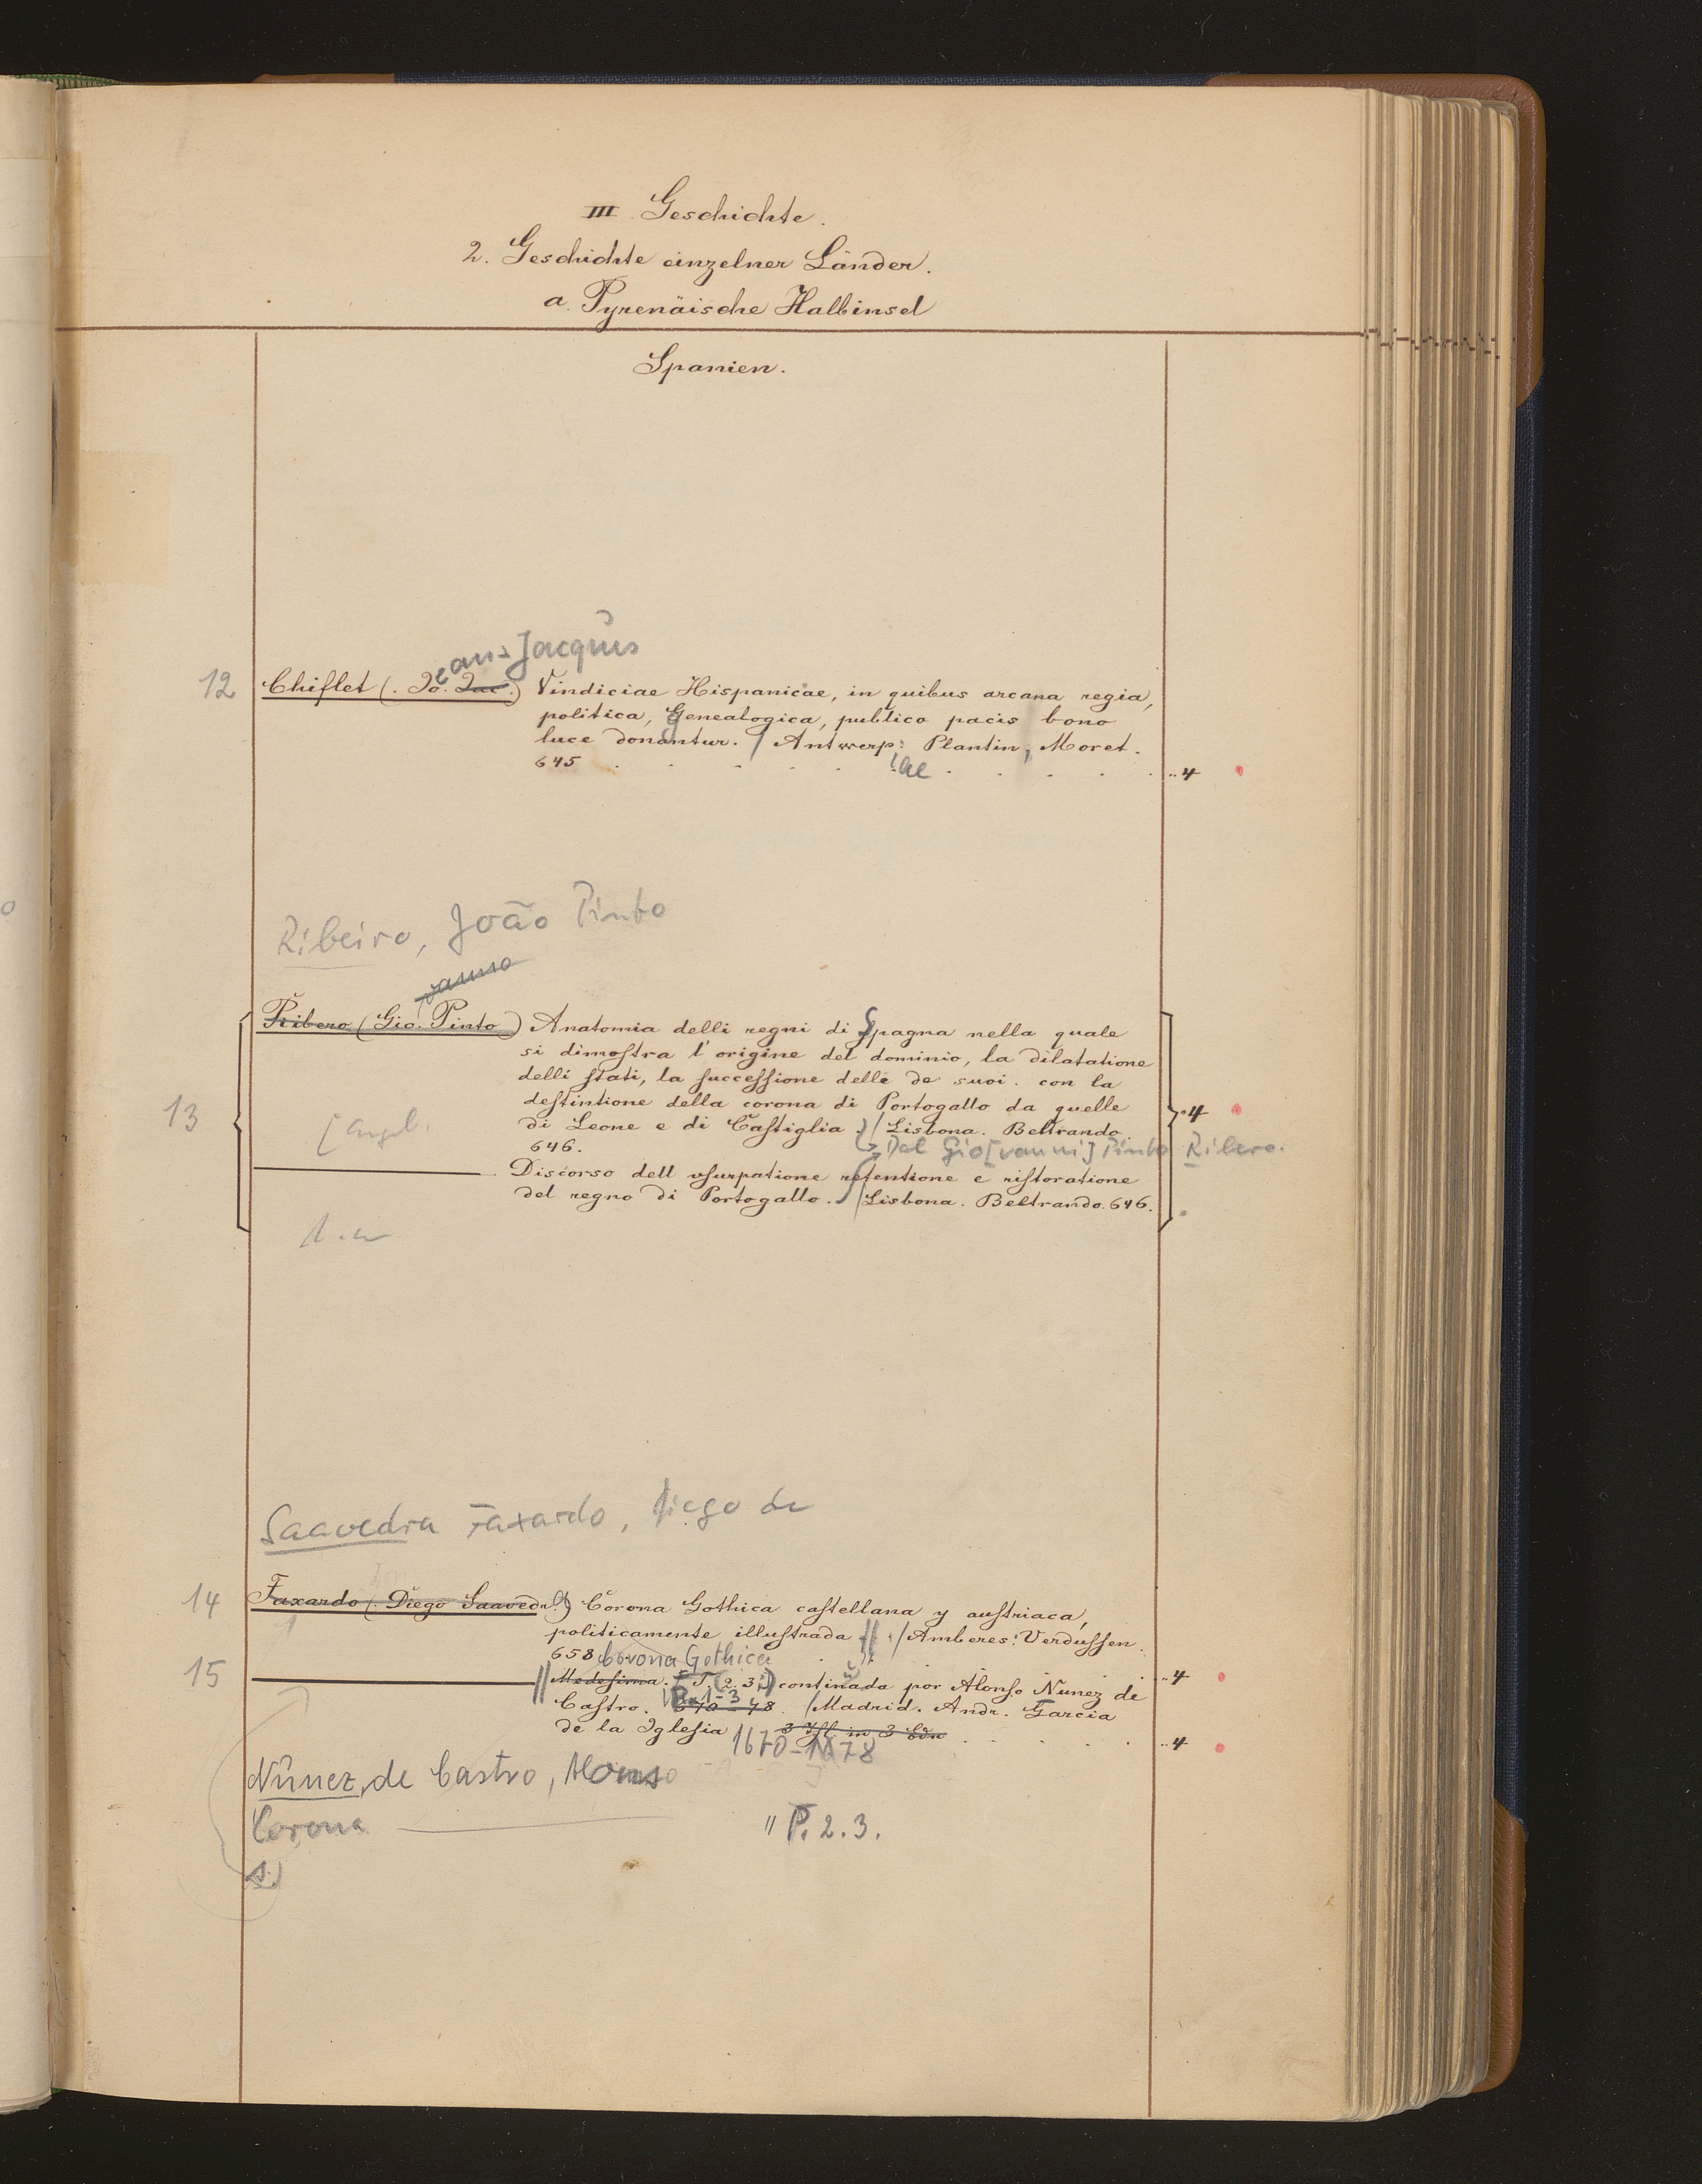 III. Geschichte.
2. Geschichte einzelner Länder.
a. Pyrenäische Halbinsel
Spanien.
ean-Jacques
12 Chiflet (. Jo. Jac.) Vindiciae Hispanicae, in quibus arcana regia,
politica, Genealogica, publico pacis bono
luce donantur. / Antwerp: Plantin, Moret.
645 . . . . . !ae . . . . . ..4
Ribeiro, João Pinto
vanno
13 Ribero (Gio. Pinto) Anatomia delli regni di Spagna nella quale
si dimoſtra l'origine del dominio, la dilatatione
delli ſtati, la ſucceſſione delli de suoi. con la
deſtintione della corona di Portogallo da quelle
di Leone e di Caſtiglia.) / Lisbona. Beltrando
646. Del Gio[vanni] Pinto Ribero.
[angeb.
..4
Discorso dell vſurpatione retentione e riſtoratione
del regno di Portogallo. / Lisbona. Beltrando. 646.
Saavedra Faxardo, Diego de
14 Faxardo (. Diego Saavedr.) Corona Gothica caſtellana y auſtriaca,
politicamente illuſtrada // . / Amberes: Verduſſen.
658 Corona Gothica ..4
15 // Medeſima. T. (2. 3.) continada por Alonſo Nunez de
Caſtro. P. 1-3 670-78. / Madrid. Andr. Garcia
de la Igleſia 3 Thl in 3 Bdn . . . . ..4
1670-1678
Núnez, de Castro, Alonso
Corona — " P. 2. 3.